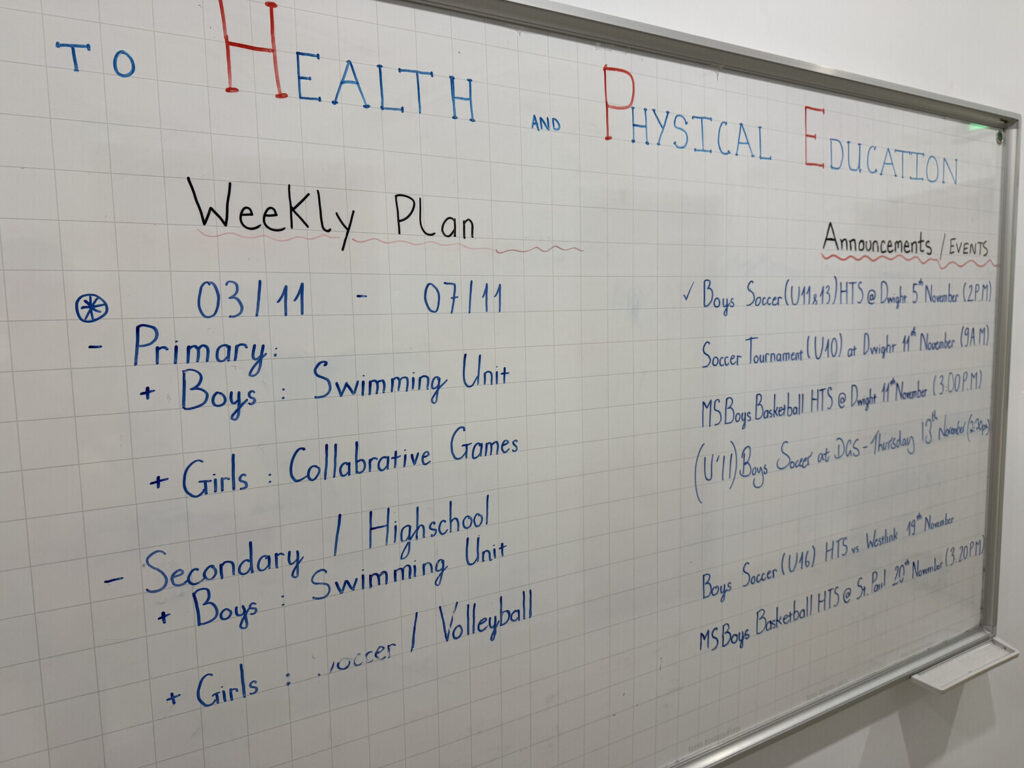 TO HEALTH AND PHYSICAL EDUCATION
Weekly Plan
03/11 - 07/11
- Primary:
+ Boys : Swimming Unit
+ Girls : Collabrative Games
- Secondary / Highschool
+ Boys : Swimming Unit
+ Girls : Soccer / Volleyball
Announcements / EVENTS
✓ Boys Soccer (U11&13) HTS @ Dwight 5th November (2P.M)
Soccer Tournament (U10) at Dwight 11th November (9A.M)
MSBoys Basketball HTS @ Dwight 11th November (3:00P.M)
(U'11) Boys Soccer at DGS - Thursday 13th November (2:30pm)
Boys Soccer (U16) HTS vs. Westlink 19th November
MSBoys Basketball HTS @ St. Paul 20th November (3.20P.M)